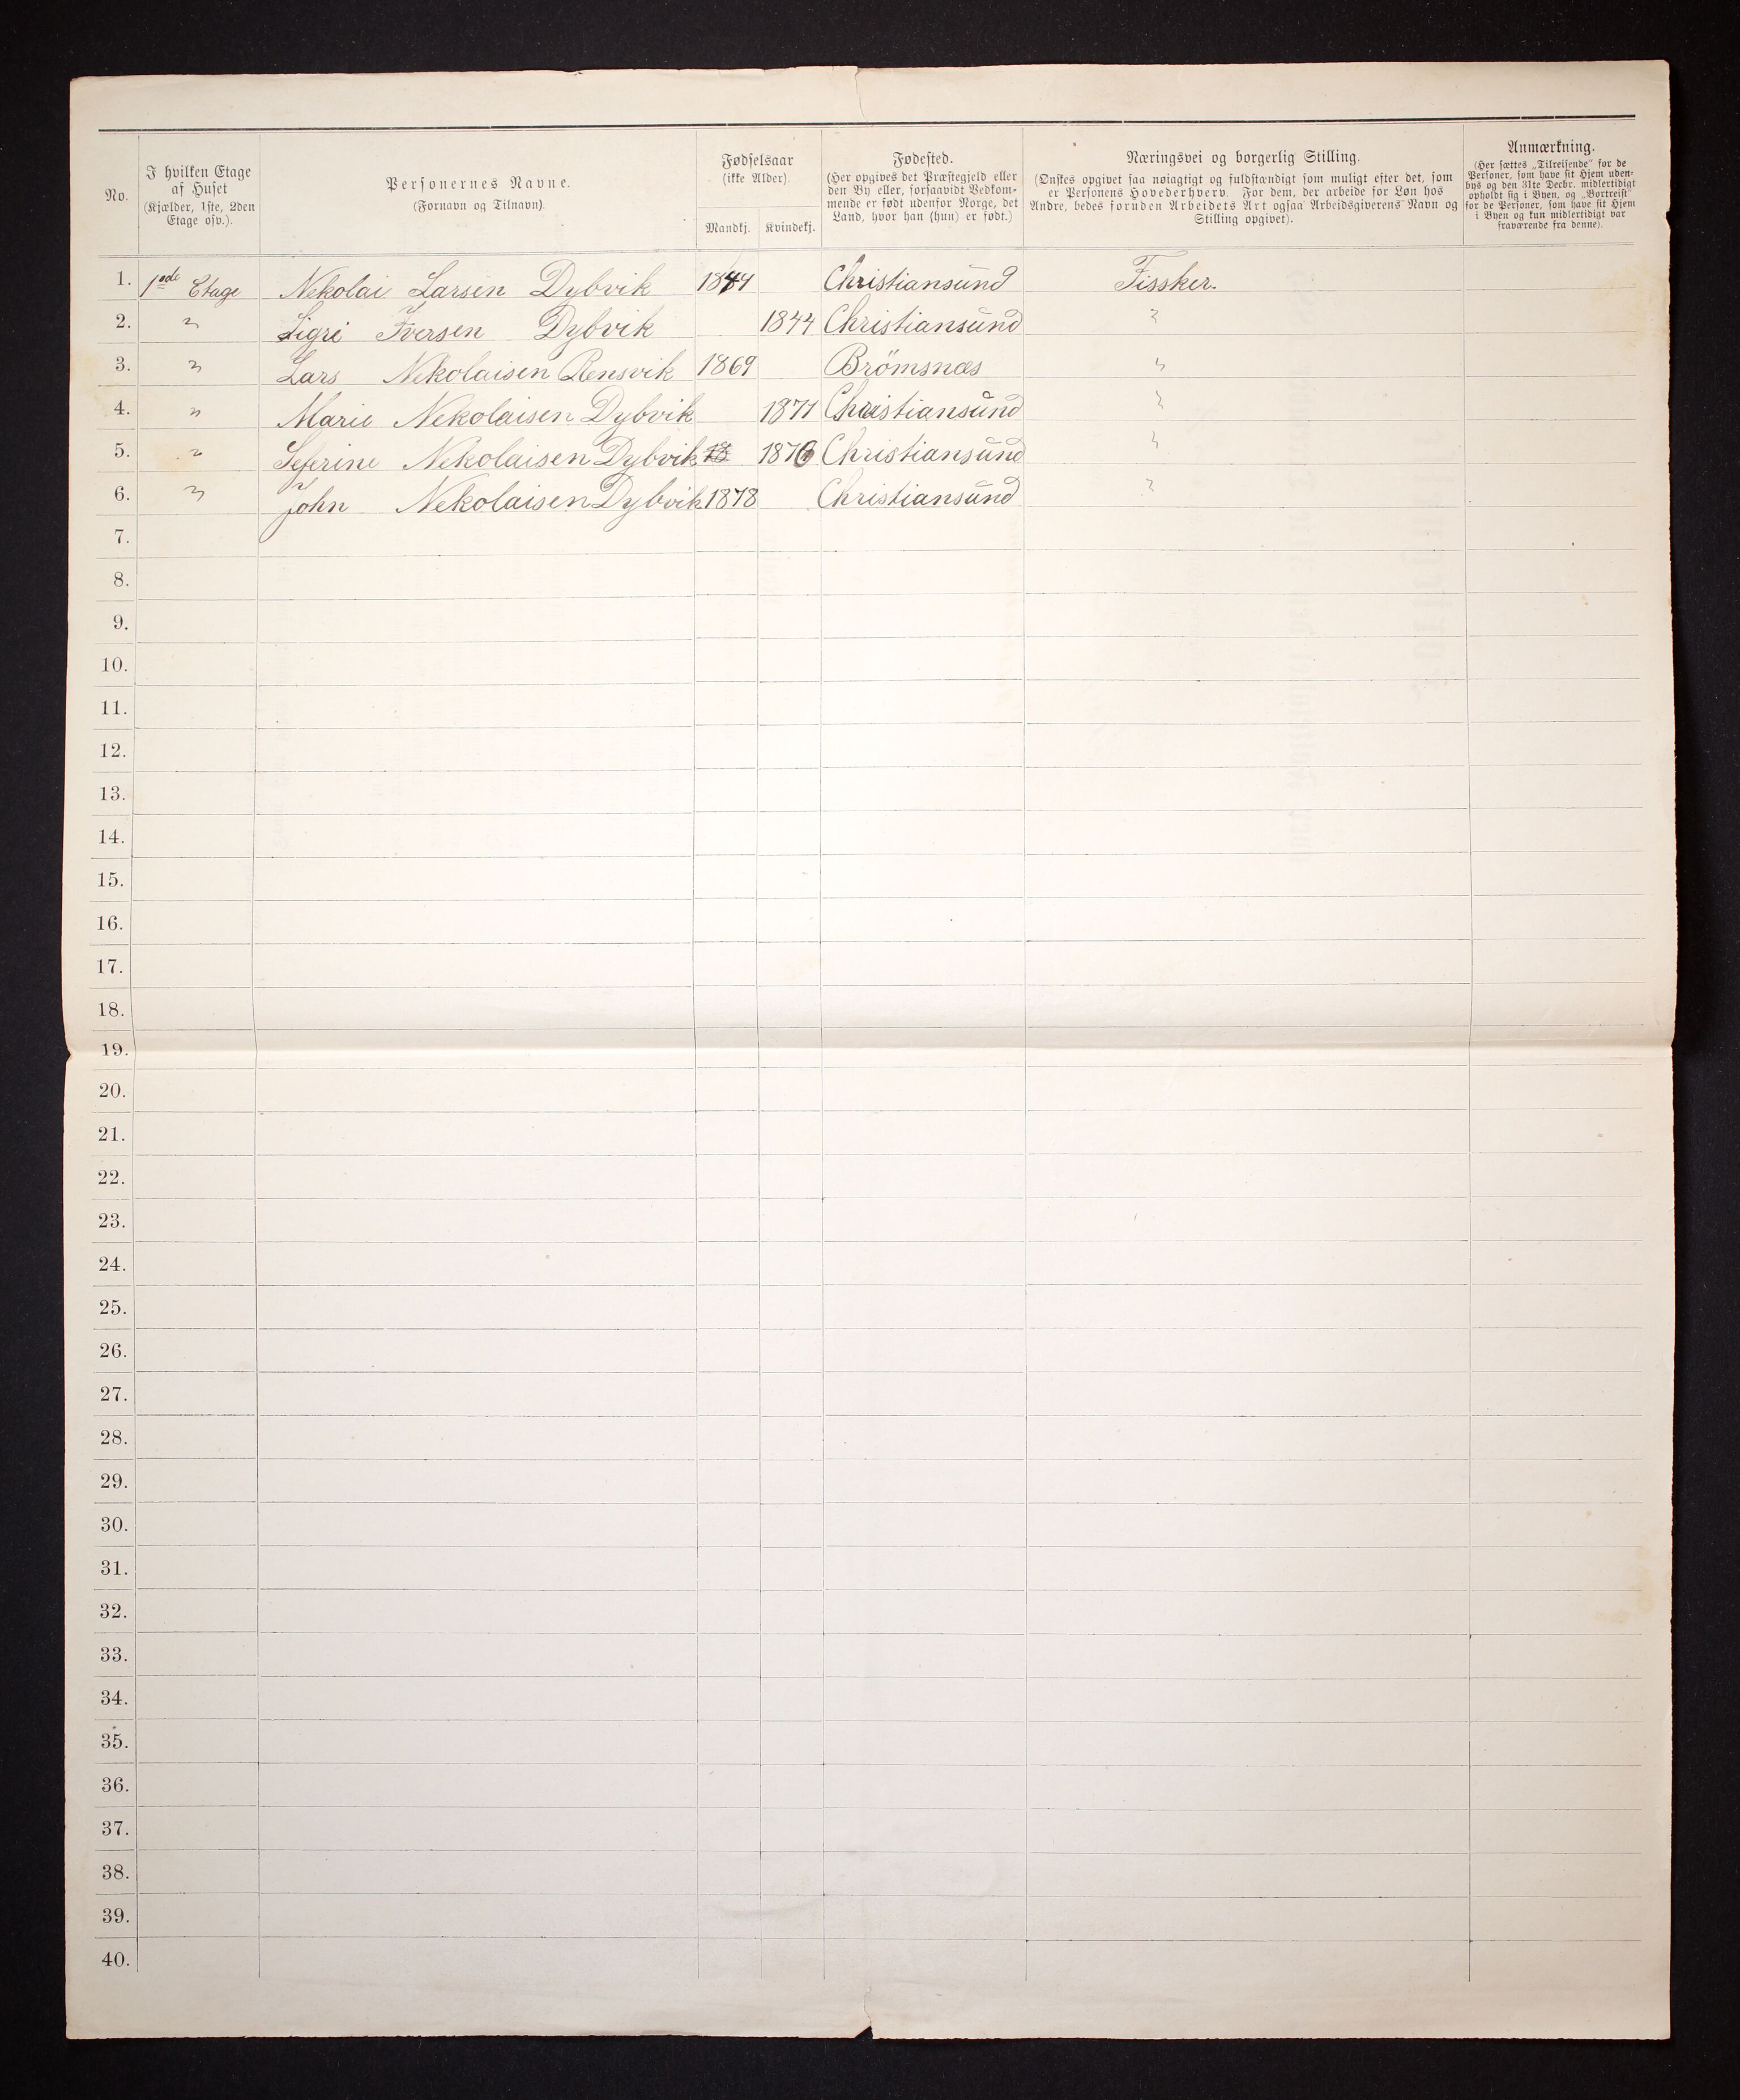 No.
I hvilken Etage
af Huset
(Kjælder, 1ste, 2den
Etage osv.).
Personernes Navne.
(Fornavn og Tilnavn).
Fødselsaar
(ikke Alder).
Mandkj. Kvindekj.
Fødested.
(Her opgives det Præstegjeld eller
den By eller, forsaavidt Vedkom-
mende er født udenfor Norge, det
Land, hvor han (hun) er født.)
Næringsvei og borgerlig Stilling.
(Ønskes opgivet saa nøiagtigt og fuldstændigt som muligt efter det, som
er Personens Hovederhverv. For dem, der arbeide for Løn hos
Andre, bedes foruden Arbeidets Art ogsaa Arbeidsgiverens Navn og
Stilling opgivet).
Anmærkning.
(Her sættes „Tilreisende“ for de
Personer, som have sit Hjem uden-
bys og den 31te Decbr. midlertidigt
opholdt sig i Byen, og „Bortreist“
for de Personer, som have sit Hjem
i Byen og kun midlertidigt var
fraværende fra denne).
1. Etage Nekolai Larsen Dybvik 1844 Christiansund Fissker.
2. " Sigri Iversen Dybvik 1844 Christiansund "
3. " Lars Nekolaisen Rensvik 1869 Brömsnæs "
4. " Marie Nekolaisen Dybvik 1871 Christiansund "
5. " Seferine Nekolaisen Dybvik 18 1876 Christiansund "
6. " John Nekolaisen Dybvik 1878 Christiansund "
7.
8.
9.
10.
11.
12.
13.
14.
15.
16.
17.
18.
19.
20.
21.
22.
23.
24.
25.
26.
27.
28.
29.
30.
31.
32.
33.
34.
35.
36.
37.
38.
39.
40.